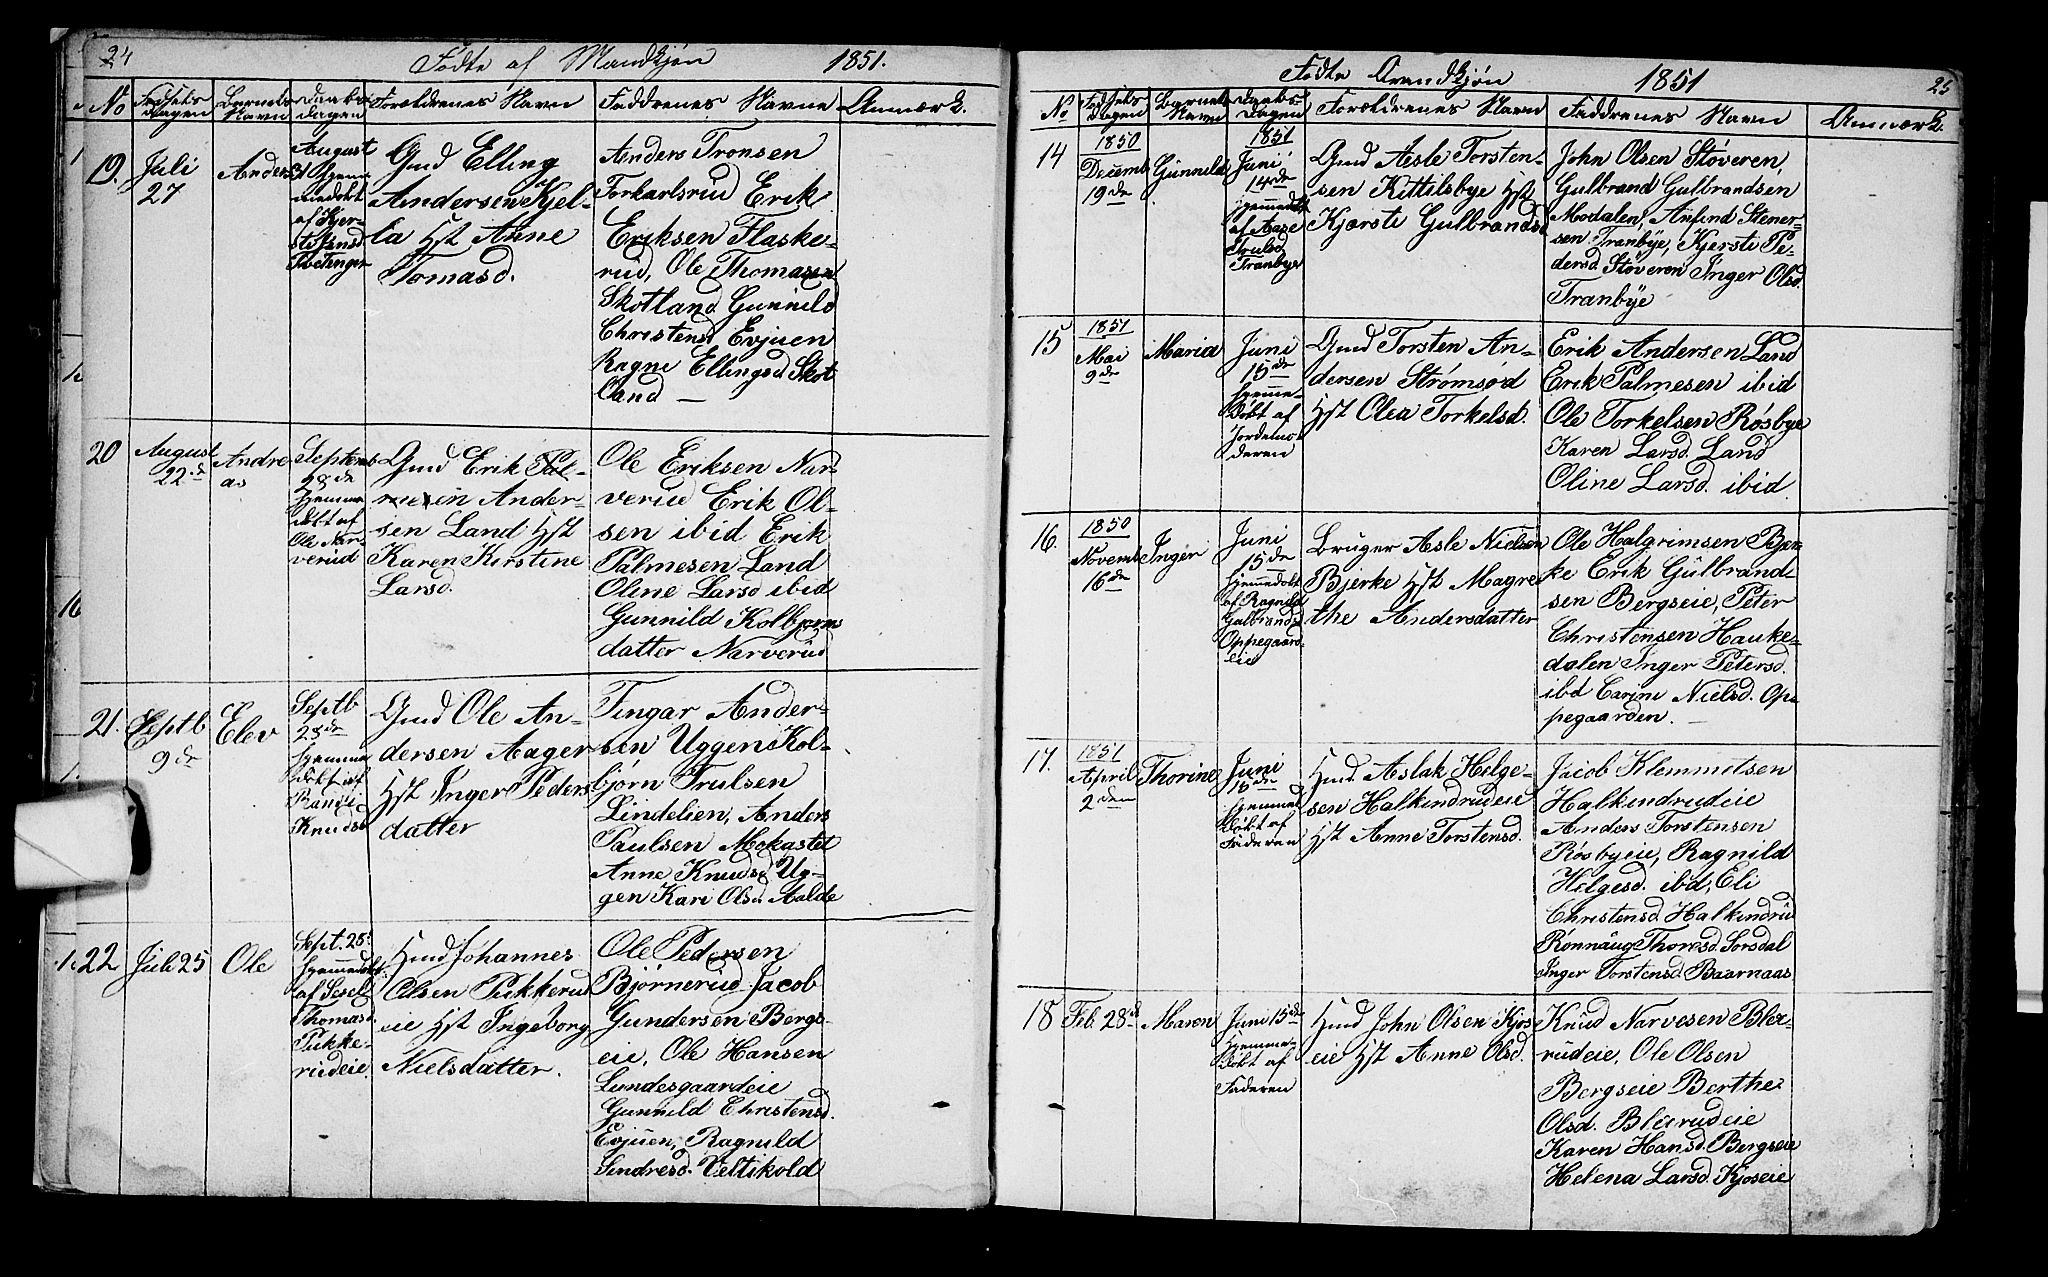 24
Fødte af Mandkjøn 1851.
No Fødsels dagen Barnets Navn Daabs dagen Forældrenes Navn Faddrenes Navne Anmærk.
19. Juli 27 Anders
August 31 Hjemmedøbt af
Gmd Elling
Andersen Kjel-
la Hst Anne
Tomasd.
Anders Tronsen
Torkarlsrud Erik
Eriksen Flaske-
rud, Ole Thomasen
Skotland Gunnild
Christensd Evjuen
Ragne Ellingsd Skot
land —
20 August 22de Andre-
as
Septemb
28de
Hjemme
døbt af
Ole Nar-
verud
Gmd Erik Pal-
mesen Ander-
sen Land Hst
Karen Kirstine
Larsd.
Ole Eriksen Nar-
verud Erik Ol-
sen ibid Erik
Palmesen Land
Oline Larsd ibid
Gunnild Kolbjørns
datter Narverud
21. Septb 9de Elev
Septb
28de
Hjemme
døbt af
Randi
Knudsd
Gmd Ole An-
dersen Aager
Hst Inger Peders
datter
Tingar Ander-
sen Uggen Kol-
bjørn Trulsen
Lindelien, Anders
Paulsen Mokastet
Anne Knudsd Ug-
gen Kari Olsd Aalde
22 Juli 25 Ole
Sept. 28de
Hjemmedøbt
af Sesel
Thomasd.
Pukke-
rudeie.
Hmd Johannes
Olsen Pukkerud
eie Hst Ingeborg
Nielsdatter.
Ole Pedersen
Bjørnerud Jacob
Gundersen Bergs-
eie, Ole Hansen
Lundesgaardeie
Gunnild Christensd.
Evjuen, Ragnild
Sindresd. Veltikold
Fødte Qvindkjøn 1851 25
No Fødsels dagen Barnets Navn Daabs- dagen Forældrenes Navn Faddrenes Navn Anmærk.
14 1850 Decemb 19de Gunnild
1851
Juni
14de
Hjemmedøbt
af Aase
Trulsd
Tranbye
Gmd Asle Torsten-
sen Kittilsbye Hst
Kjærsti Gulbrandsd
John Olsen Støveren,
Gulbrand Gulbrandsen
Modalen, Anfind Stener-
sen Tranbye, Kjersti Pe-
dersd Støveren Inger Olsd.
Tranbye
15 1851 Mai 9de Maria
Juni
15de
Hjemme-
døbt af
Jordemo-
deren
Gmd Torsten An-
dersen Strømsød
Hst Olea Torkelsd.
Erik Andersen Land
Erik Palmesen ibid
Ole Torkelsen Røsbye
Karen Larsd. Land
Oline Larsd. ibid.
16. 1850 Novemb 16de Inger
Juni
15de
Hjemmedøbt
af Ragnild
Gulbrandsd
Oppegaards-
eie
Bruger Asle Nielsen
Bjerke Hst Magre
the Andersdatter
Ole Halgrimsen Bjer
ke Erik Gulbrand-
sen Bergseie, Peter
Christensen Hauke-
dalen Inger Petersd.
ibd Carine Nielsd. Op-
pegaarden. —
17. 1851 April 2den Thorine
Juni
15de
Hjemme
døbt af
Faderen
Hmd. Aslak Helge-
sen Halkindrudeie
Hst Anne Torstensd.
Jacob Klemmetsen
Halkindrudeie
Anders Torstensen
Røsbyeie, Ragnild
Helgesd. ibd, Eli
Christensd Halkindrud
Rønnaug Thoresd. Sorsdal
Inger Torstensd Baarnaas
18 Feb. 28de Maren
Juni 15de
Hjemme-
døbt af
Faderen
Hmd John Olsen Kjos
eie Hst Anne Olsd.
Knud Narvesen Bler-
rudeie, Ole Olsen
Bergseie Berthe
Olsd. Blerrudeie
Karen Hansd. Bergseie
Helena Larsd. Kjoseie